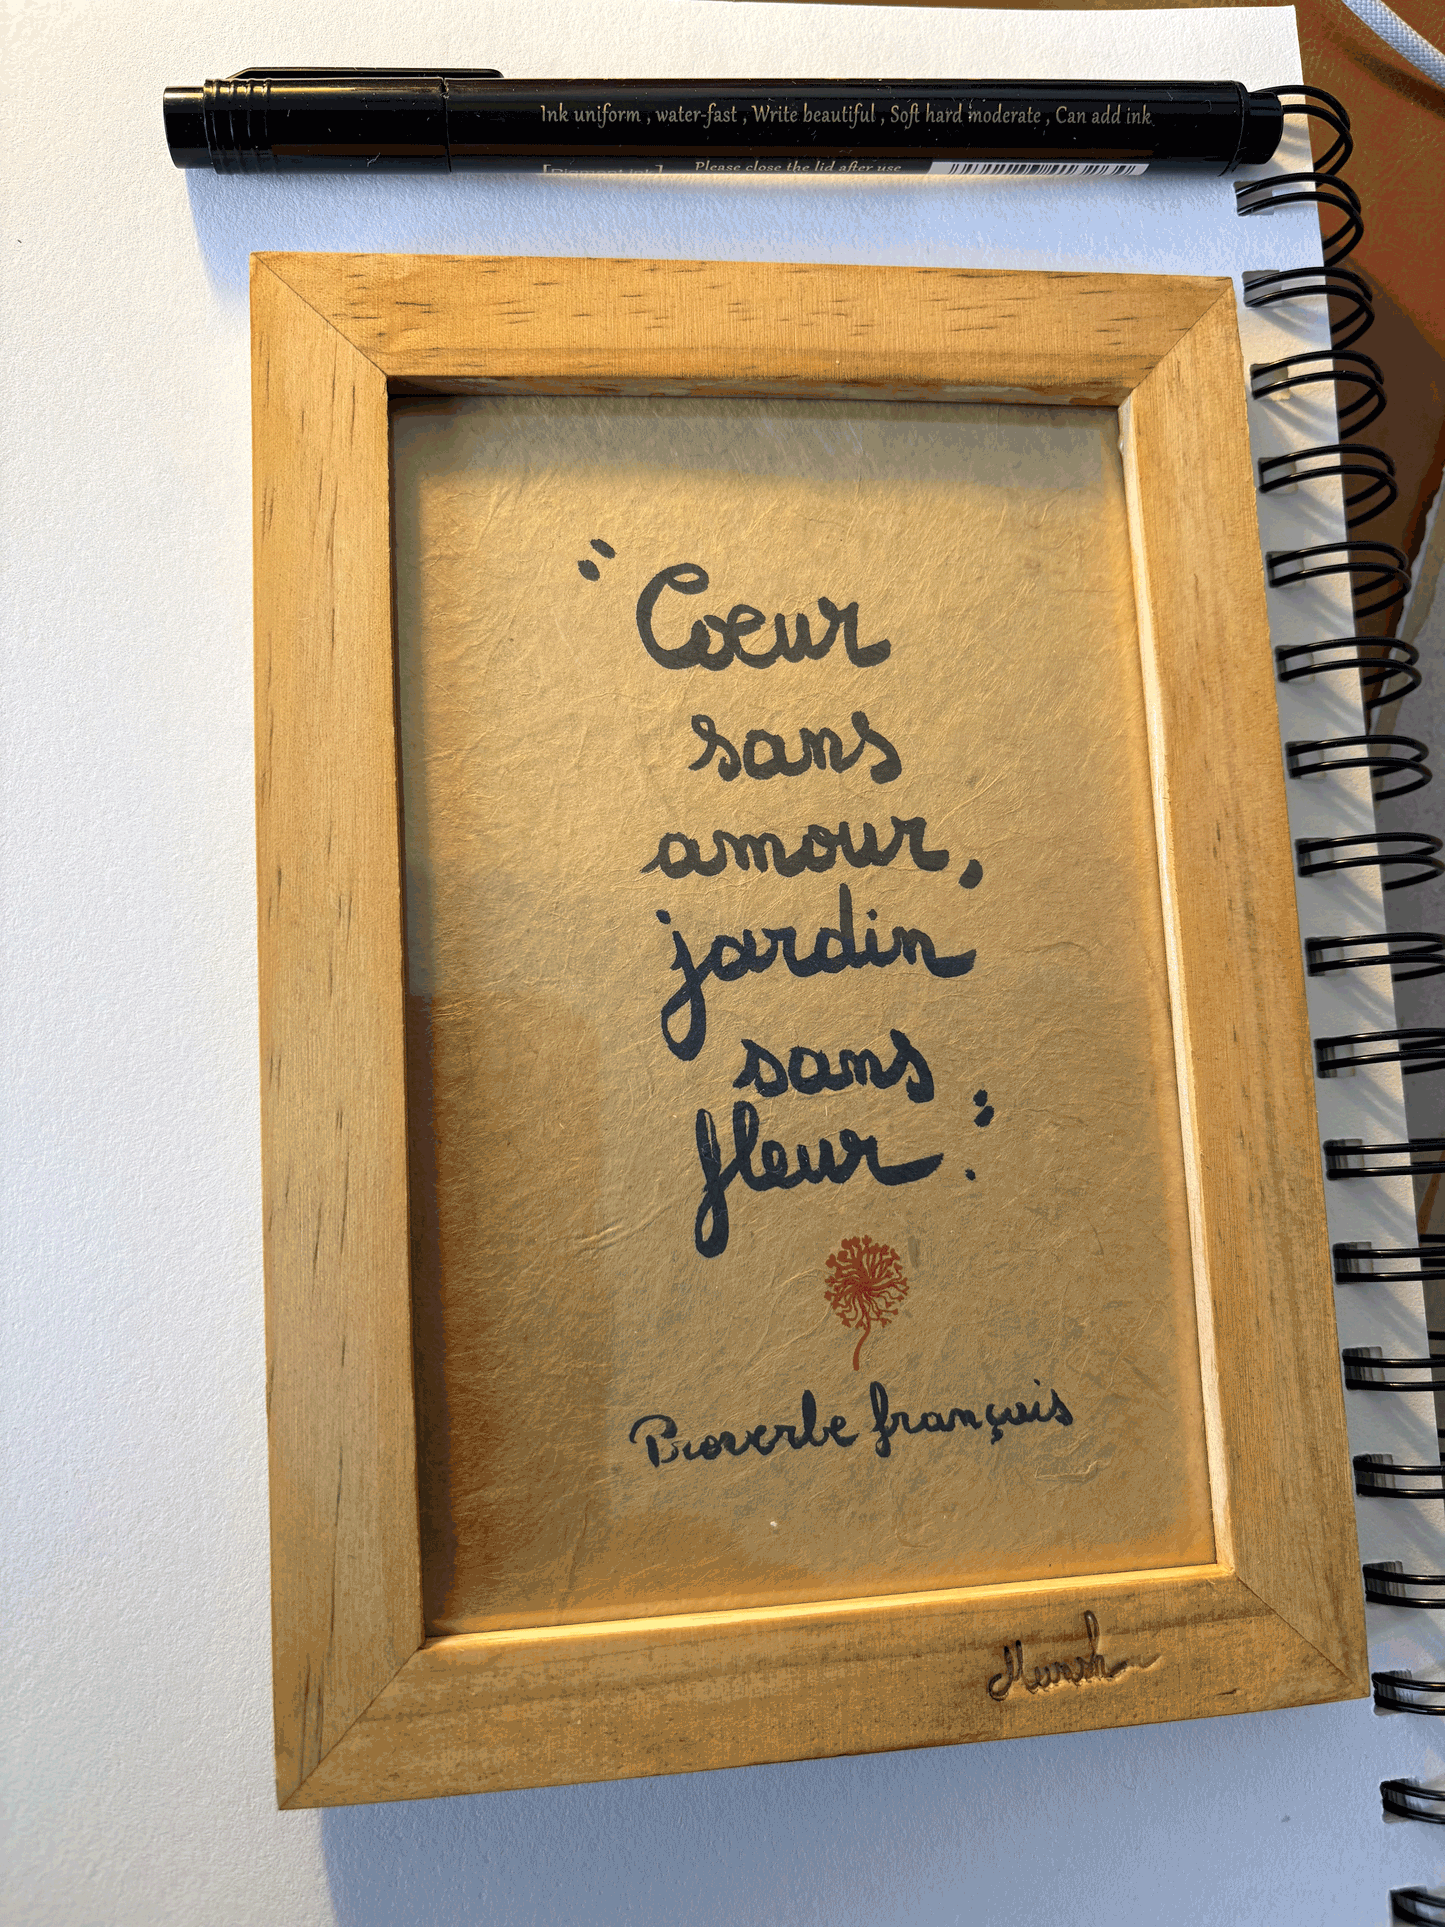 Ink uniform , water-fast , Write beautiful , Soft hard moderate , Can add ink
[Pigment ink] Please close the lid after use
"Coeur
sans
amour,
jardin
sans
fleur."
Proverbe français